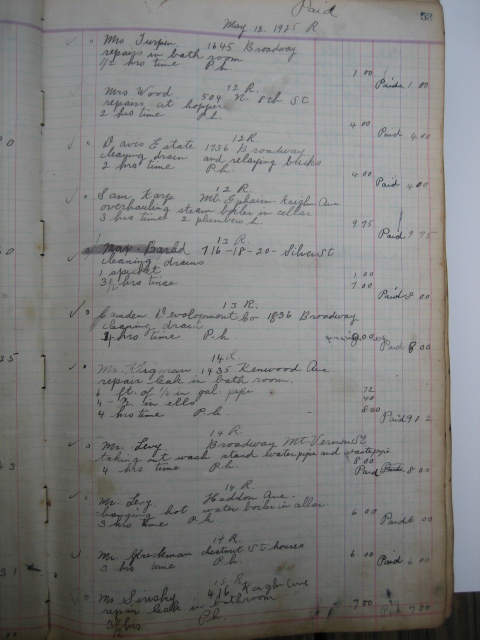 Paid
58
May 12. 1925 R
Mrs Turpin 1645 Broadway
repairs in bath room
1/2 hrs time Ph 1 00 Paid 1 00
12 R.
Mrs Wood 504 N. 8th St
repairs at hopper
2 hrs time Ph. 4 00 Paid 4 00
12 R.
Davis Estate 1736 Broadway
cleaning drain and relaying bricks
2 hrs time Ph. 4.00 Paid 4.00
12 R.
Sam Karp Mt. Ephraim Kaighn Ave
overhauling steam boiler in cellar
3 hrs time 2 plumbers 9.75 Paid 9 75
13 R.
Max Barad 716-18-20- Silver St
cleaning drains
1 1.00
3 1/2 hrs time 7.00 Paid 8 00
13 R.
Camden Development Co 1836 Broadway
cleaning drain
4 hrs time Ph 8 00 Paid 8 00
14 R.
Mr. 1435 Kenwood Ave
repair leak in bath room.
6 ft. of 1/2 in gal. pipe 72
4 - 1/2 in ells 40
4 hrs time P.h. 8 00 Paid 9 12
14 R.
Mr. Levy Broadway Mt. Vernon St
taking out wash stand water pipe and waste pipe
4 hrs time Ph. 8 00 Paid 8 00
14 R.
Mr. Levy Haddon Ave.
changing hot water boiler in cellar
3 hrs time Ph 6 00 Paid 6 00
17 R.
Mr. St houses
3 hrs time Ph. 6 00 Paid 6 00
15 R.
Mr 416 Kaighn Ave
repair leak in bathroom
3 1/2 hrs Ph. 7.00 Paid 7.00